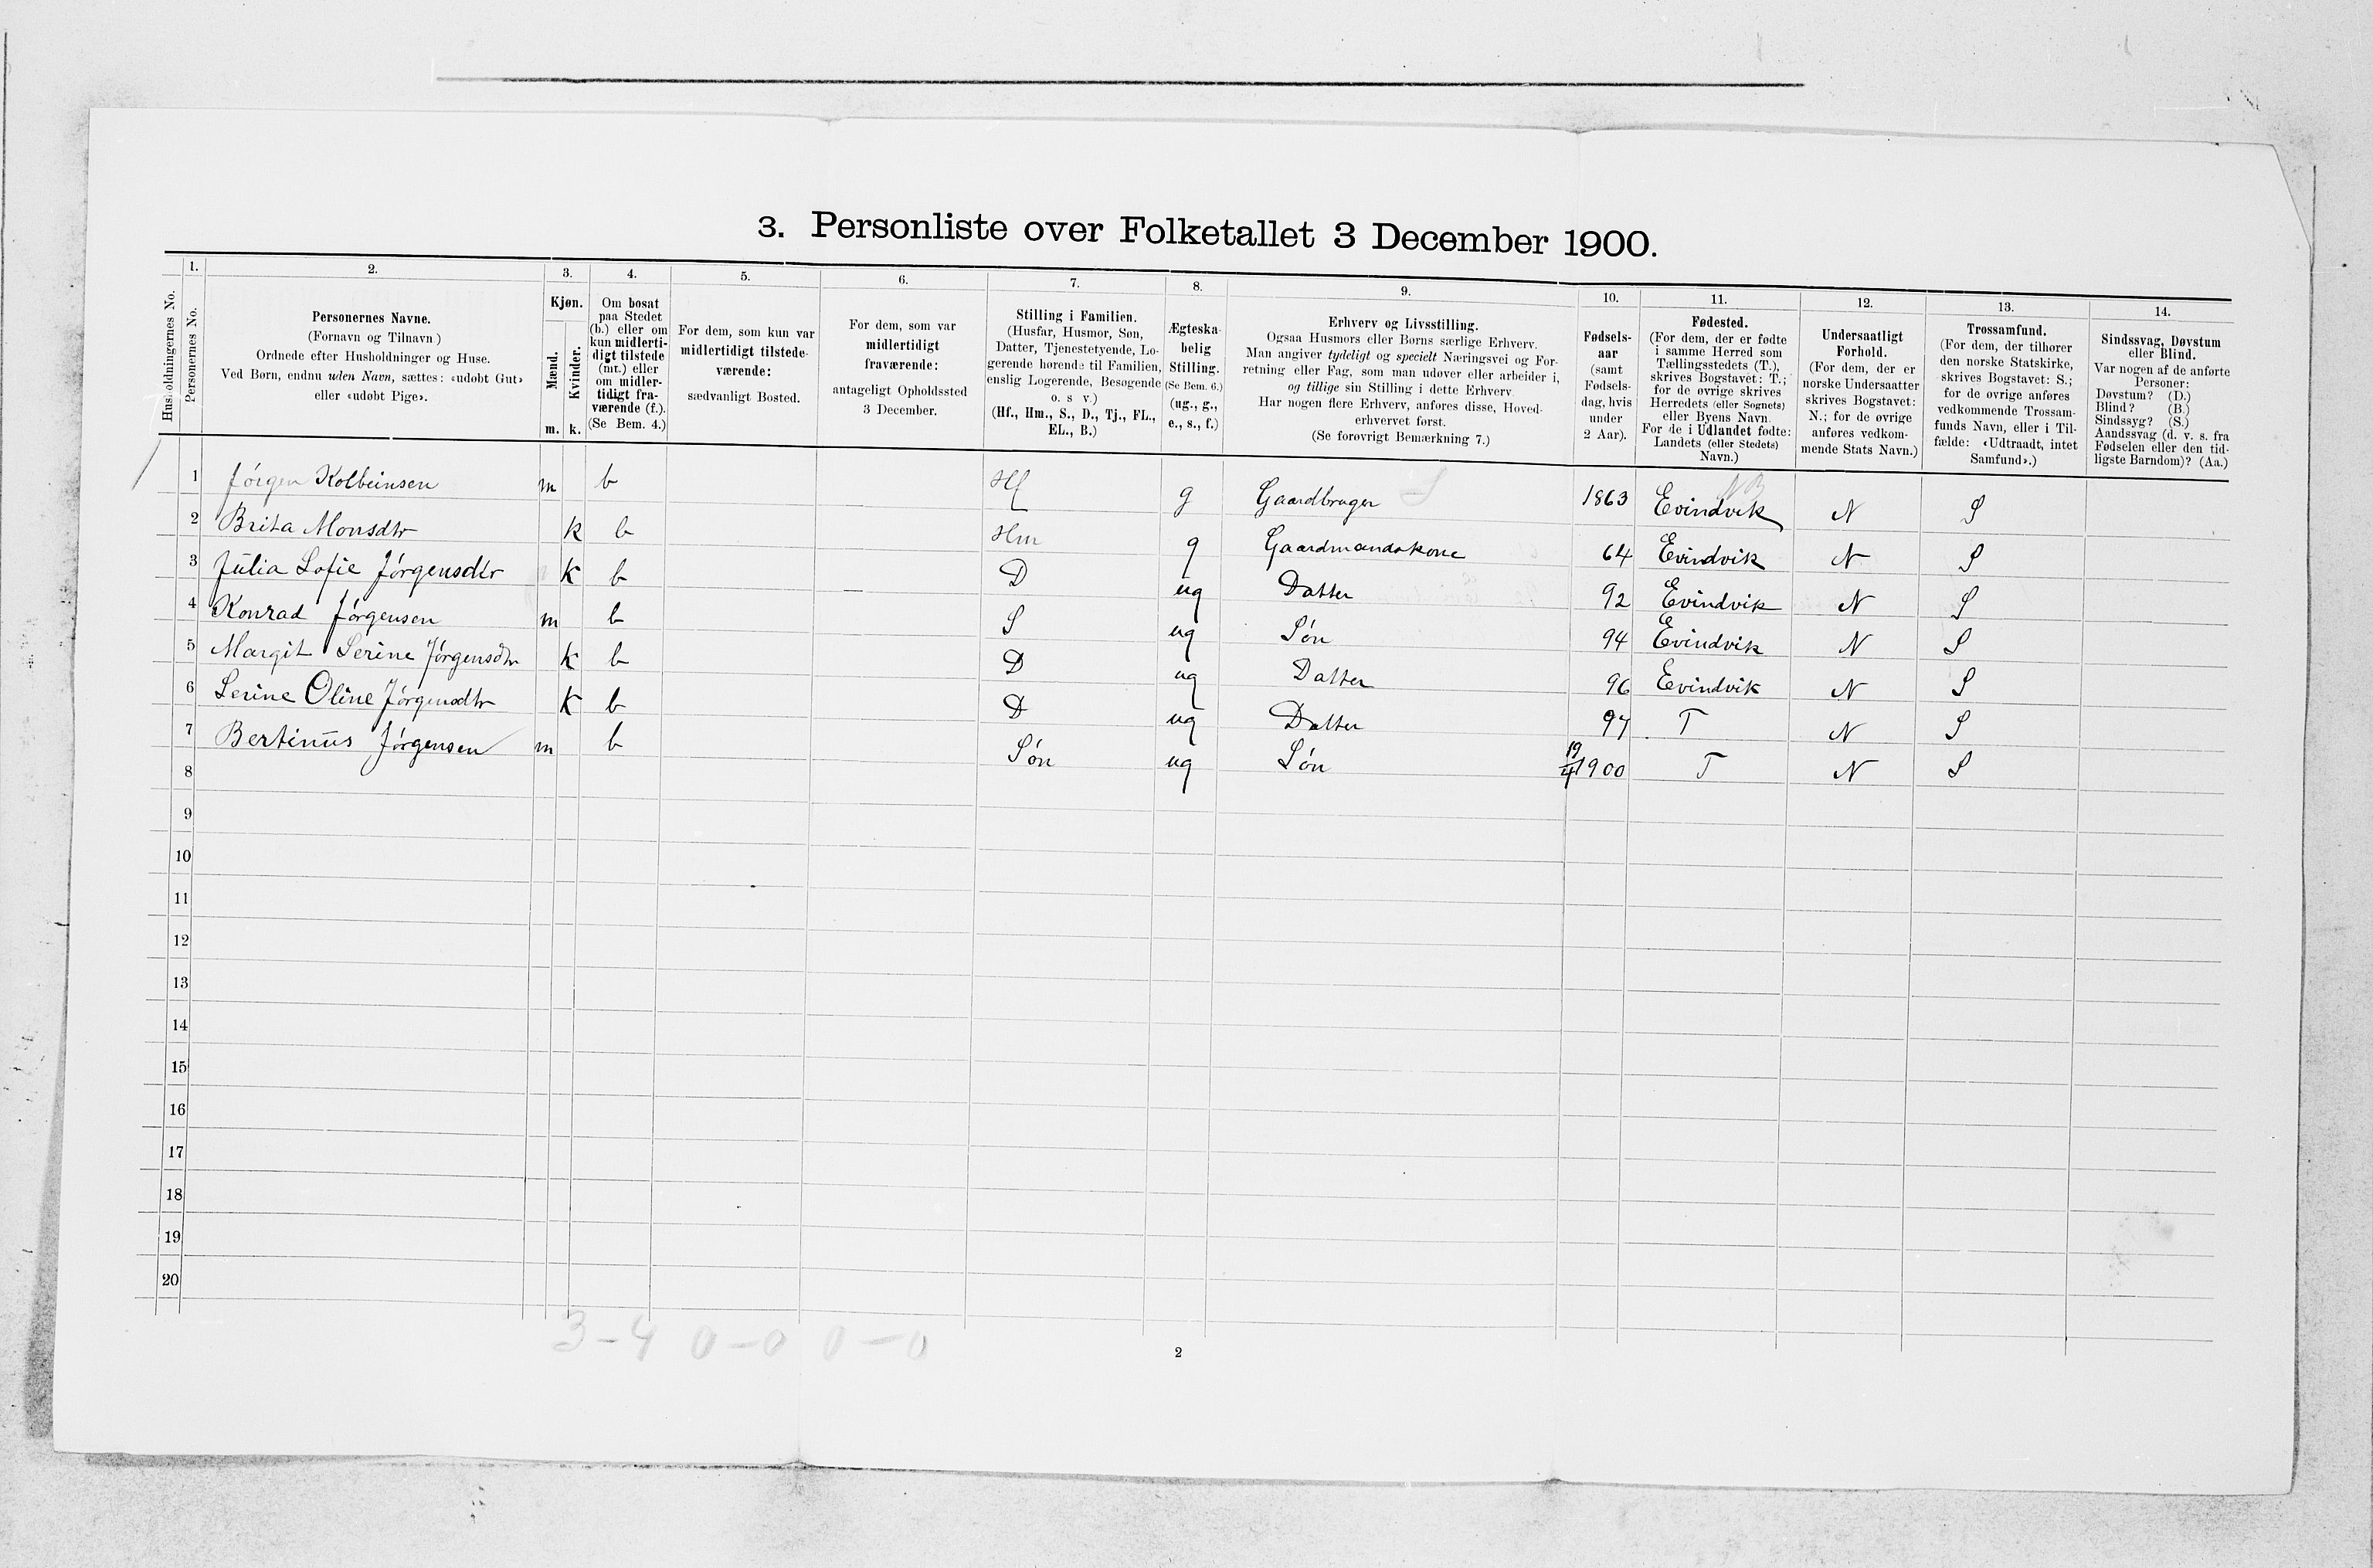 3. Personliste over Folketallet 3 December 1900.
1. 2. 3. 4. 5. 6. 7. 8. 9. 10. 11. 12. 13. 14.
Husholdningernes No.
Personernes No.
Personernes Navne.
(Fornavn og Tilnavn)
Ordnede efter Husholdninger og Huse.
Ved Børn, endnu uden Navn, sættes: «udøbt Gut»
eller «udøbt Pige».
Kjøn.
Mænd.
Kvinder.
m. k.
Om bosat
paa Stedet
(b.) eller om
kun midlerti-
digt tilstede
(mt.) eller
om midler-
tidigt fra-
værende (f.).
(Se Bem. 4.)
For dem, som kun var
midlertidigt tilstede-
værende:
sædvanligt Bosted.
For dem, som var
midlertidigt
fraværende:
antageligt Opholdssted
3 December.
Stilling i Familien.
(Husfar, Husmor, Søn,
Datter, Tjenestetyende, Lo-
gerende hørende til Familien,
enslig Logerende, Besøgende
o. s v.)
(Hf., Hm., S., D., Tj., FL.,
EL., B.)
Ægteska-
belig
Stilling.
(Se Bem. 6.)
(ug., g.,
e., s., f.)
Erhverv og Livsstilling.
Ogsaa Husmors eller Børns særlige Erhverv.
Man angiver tydeligt og specielt Næringsvei og For-
retning eller Fag, som man udøver eller arbeider i,
og tillige sin Stilling i dette Erhverv.
Har nogen flere Erhverv, anføres disse, Hoved-
erhvervet først.
(Se forøvrigt Bemærkning 7.)
Fødsels-
aar
(samt
Fødsels-
dag, hvis
under
2 Aar).
Fødested.
(For dem, der er fødte
i samme Herred som
Tællingsstedets (T.),
skrives Bogstavet: T.;
for de øvrige skrives
Herredets (eller Sognets)
eller Byens Navn.
For de i Udlandet fødte:
Landets (eller Stedets)
Navn.)
Undersaatligt
Forhold.
(For dem, der er
norske Undersaatter
skrives Bogstavet:
N.; for de øvrige
anføres vedkom-
mende Stats Navn.)
Trossamfund.
(For dem, der tilhører
den norske Statskirke,
skrives Bogstavet: S.;
for de øvrige anføres
vedkommende Trossam-
funds Navn, eller i Til-
fælde: «Udtraadt, intet
Samfund».)
Sindssvag, Døvstum
eller Blind.
Var nogen af de anførte
Personer:
Døvstum? (D.)
Blind? (B.)
Sindssyg? (S.)
Aandssvag (d. v. s. fra
Fødselen eller den tid-
ligste Barndom)? (Aa.)
1 Jörgen Kolbeinsen m b Hf g Gaardbruger 1863 Evindvik N S
2 Brita Monsdtr k b Hm g Gaardmandskone 64 Evindvik N S
3 Julia Sofie Jörgensdtr K b D ug Datter 92 Evindvik N S
4 Konrad Jörgensen m b S ug Sön 94 Evindvik N S
5 Margit Serine Jörgensdtr K b D ug Datter 96 Evindvik N S
6 Serine Oline Jörgensdtr K b D ug Datter 97 T N S
7 Bertinus Jörgensen m b Sön ug Sön 19/4 1900 T N S
8
9
10
11
12
13
14
15
16
17
18
19
20
3-4 0-0 0-0
2